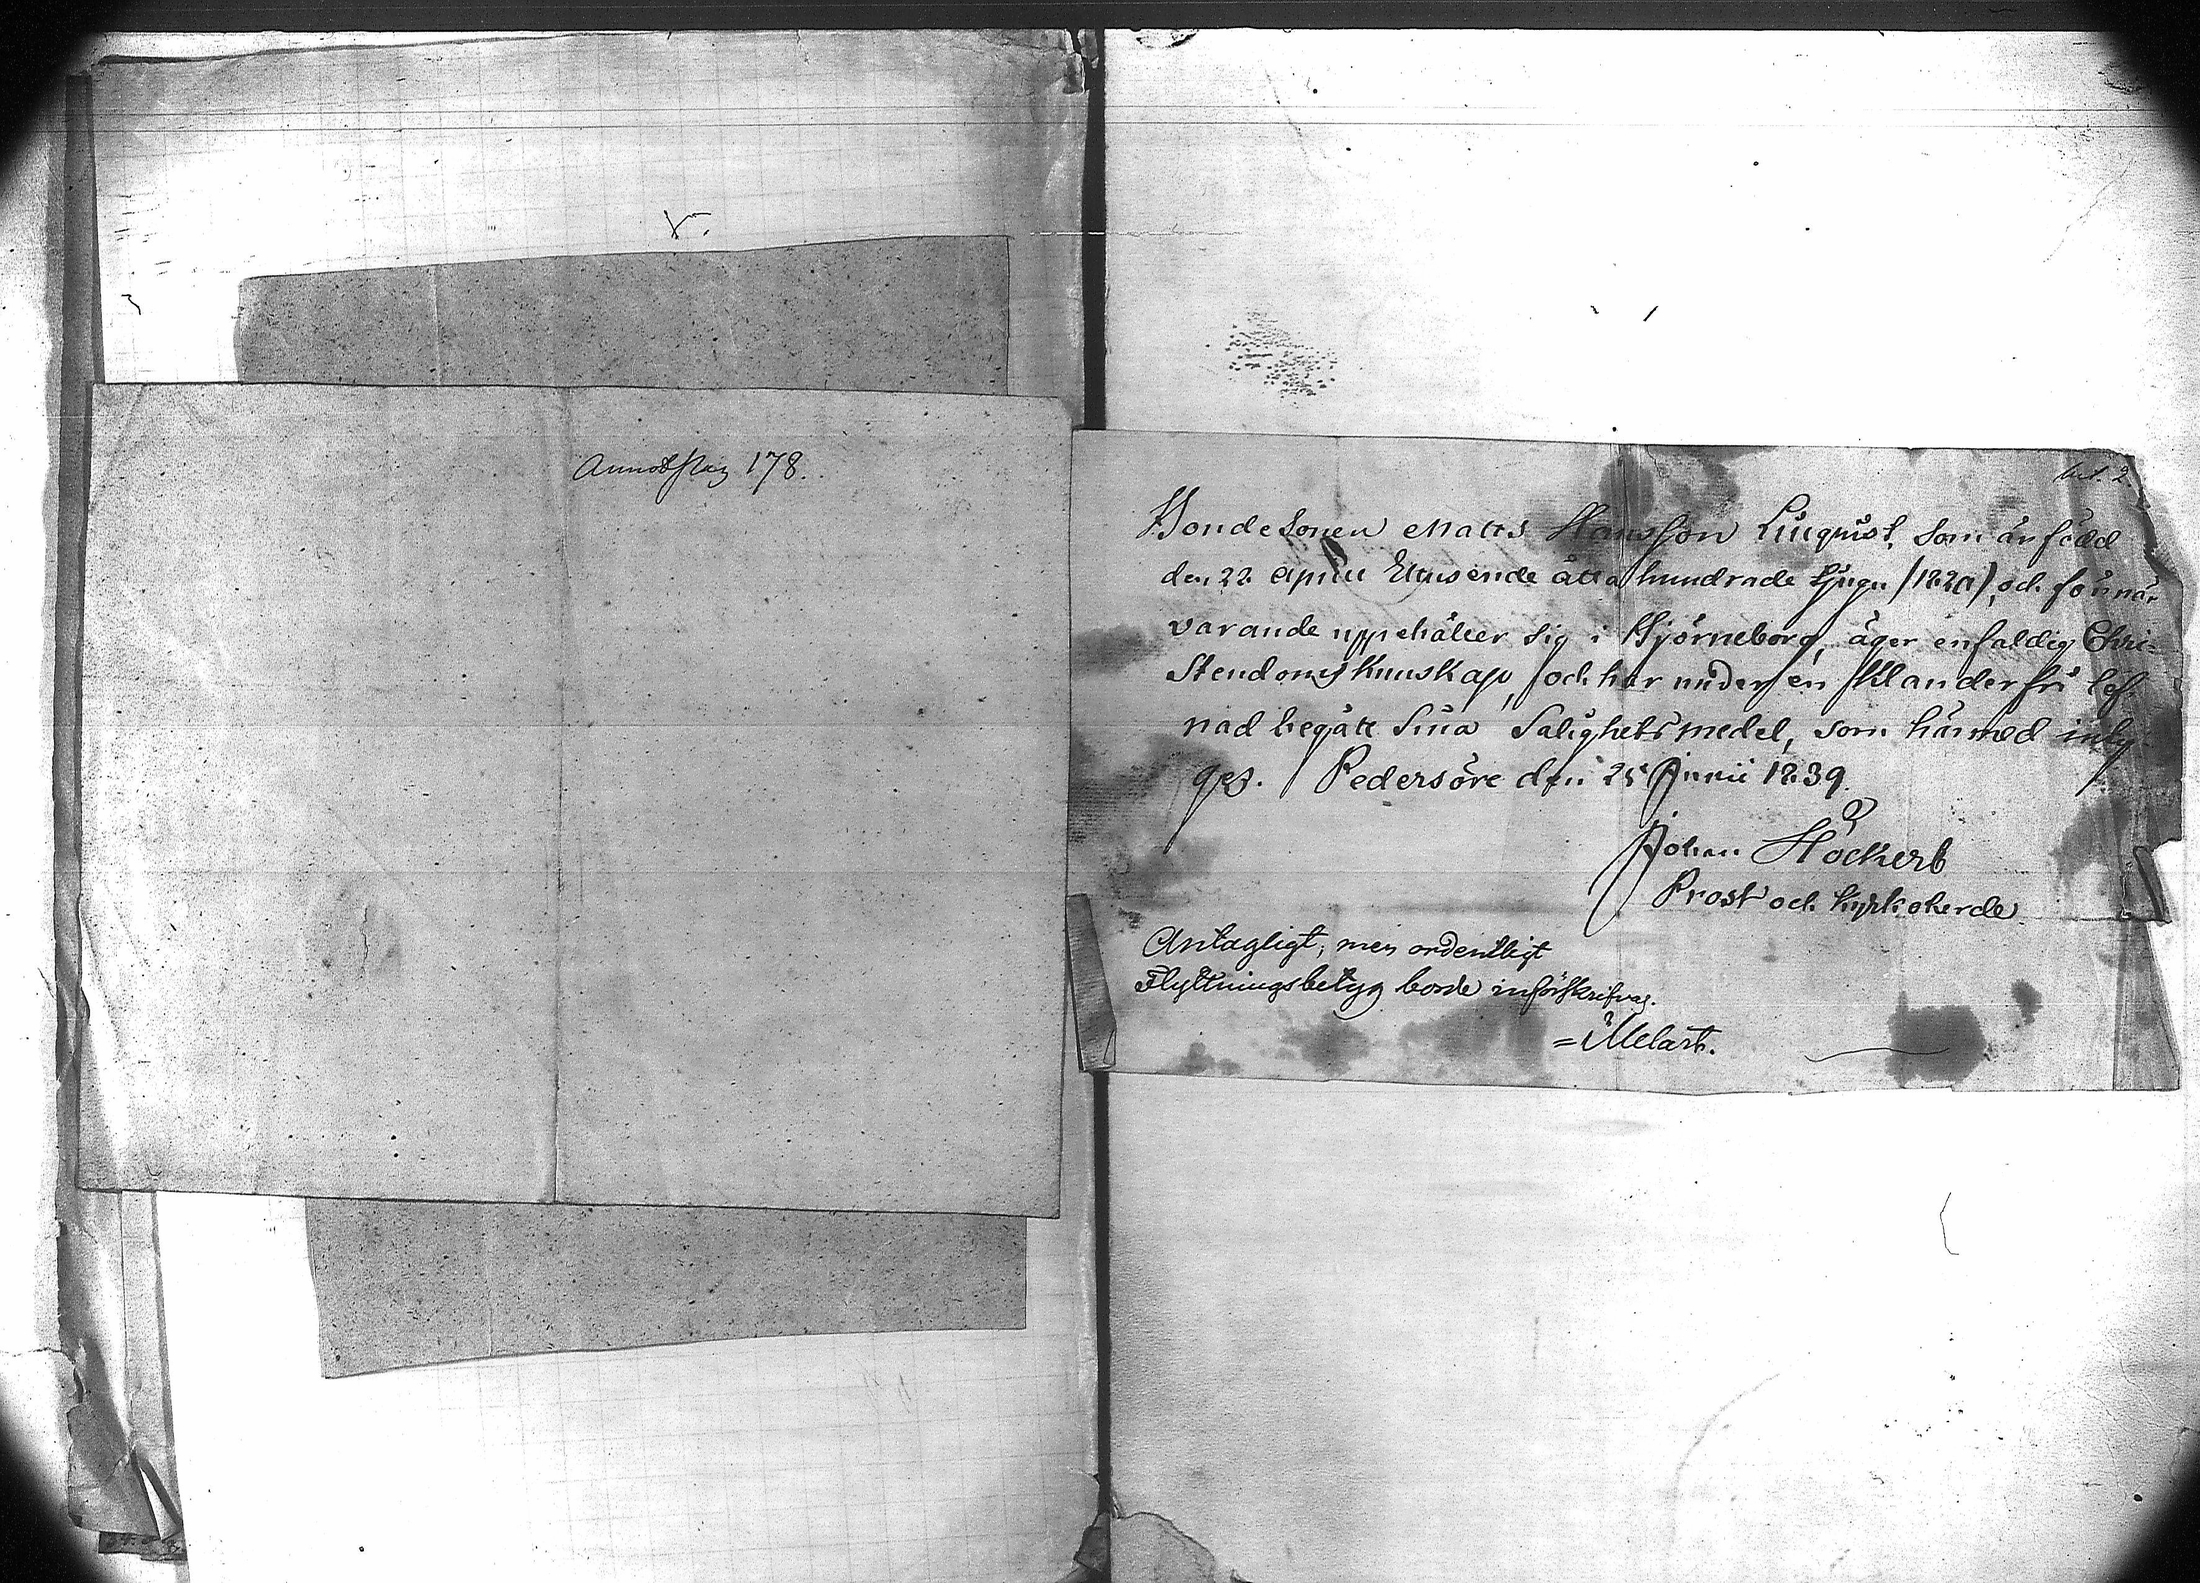 V.
Annotpag 178.
Lit. 2.
Bonde Sonen Matts Hansson Liliqvist, som är född
den 22 April Ettusende åtta hundrade tjugu /1820/, och för när-
varande uppehåller sig i Björneborg, äger enfaldig Chri-
stendoms kunskap, och har under en klanderfri lef-
nad begått sina Salighets medel, som härmed inty-
gas. Pedersöre den 25 Junii 1839.
Johan Höckert
Prost och kyrkoherde
Antagligt, men ordentligt
Flyttningsbetyg borde införskrifvas.
= Melart.